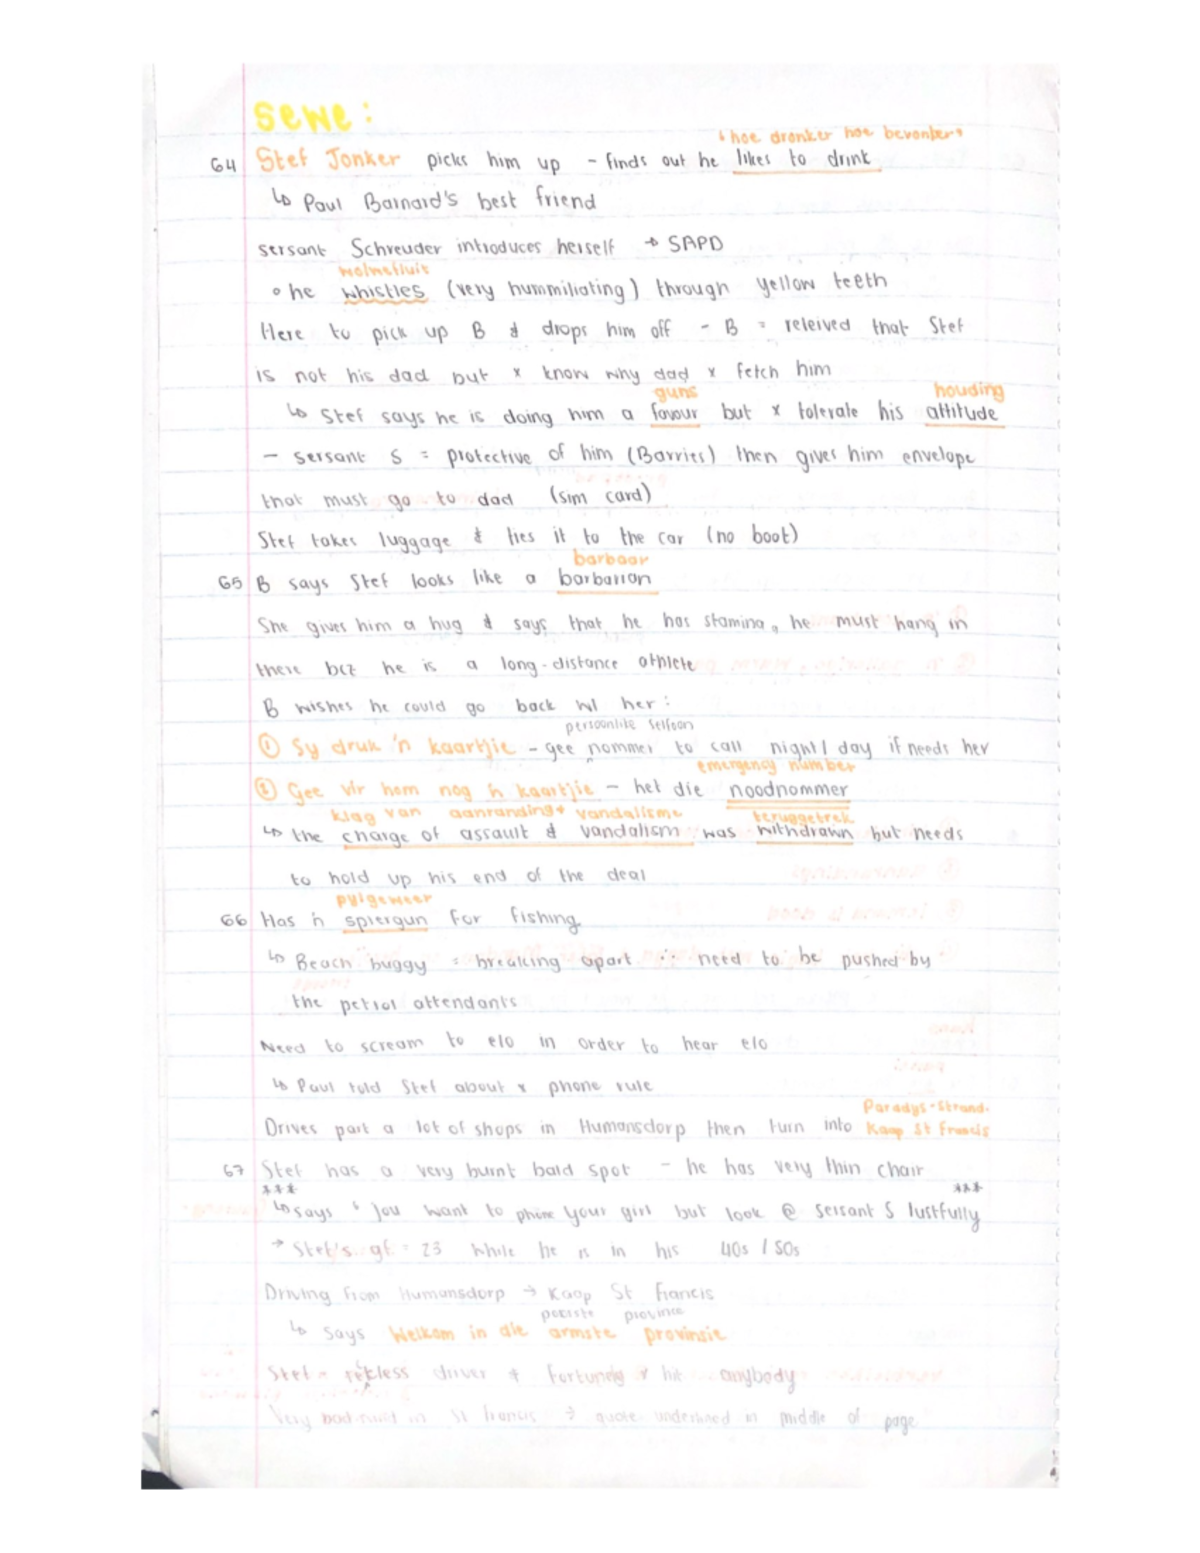 sewe:
" hoe dronker hoe bevonker"
64 Stef Jonker picks him up - finds out he likes to drink
↳ Paul Barnard's best friend
sersant Schreuder introduces herself → SAPD
wolwefluit
• he whistles (very hummiliating) through yellow teeth
Here to pick up B & drops him off - B = releived that Stef
is not his dad but x know why dad x fetch him
guns houding
↳ Stef says he is doing him a favour but x tolerate his attitude
- sersant S = protective of him (Barries) then gives him envelope
that must go to dad (sim card)
Stef takes luggage & ties it to the car (no boot)
barbaar
65 B says Stef looks like a barbarian
She gives him a hug & says that he has stamina, he must hang in
there bcz he is a long-distance athlete
B wishes he could go back w/ her:
persoonlike selfoon
① Sy druk 'n kaartjie - gee nommer to call night/day if needs her
emergency number
② Gee vir hom nog 'n kaartjie - het die noodnommer
klag van aanranding + vandalisme teruggetrek
↳ the charge of assault & vandalism was withdrawn but needs
to hold up his end of the deal
pylgeweer
66 Has 'n spiergun for fishing
↳ Beach buggy = breaking apart ∴ need to be pushed by
the petrol attendants
Need to scream to e/o in order to hear e/o
↳ Paul told Stef about x phone rule
Paradys-Strand.
Drives past a lot of shops in Humansdorp then turn into Kaap St Francis
67 Stef has a very burnt bald spot - he has very thin chair
*** ***
↳ says ' jou want to phone your girl but look @ sersant S lustfully
→ Stef's gf = 23 while he is in his 40s / 50s
Driving from Humansdorp → Kaap St Francis
poorste province
↳ says Welkom in die armste provinsie
Stef = rekless driver + fortunely x hit anybody
Very bad in St Francis → quote underlined in middle of page